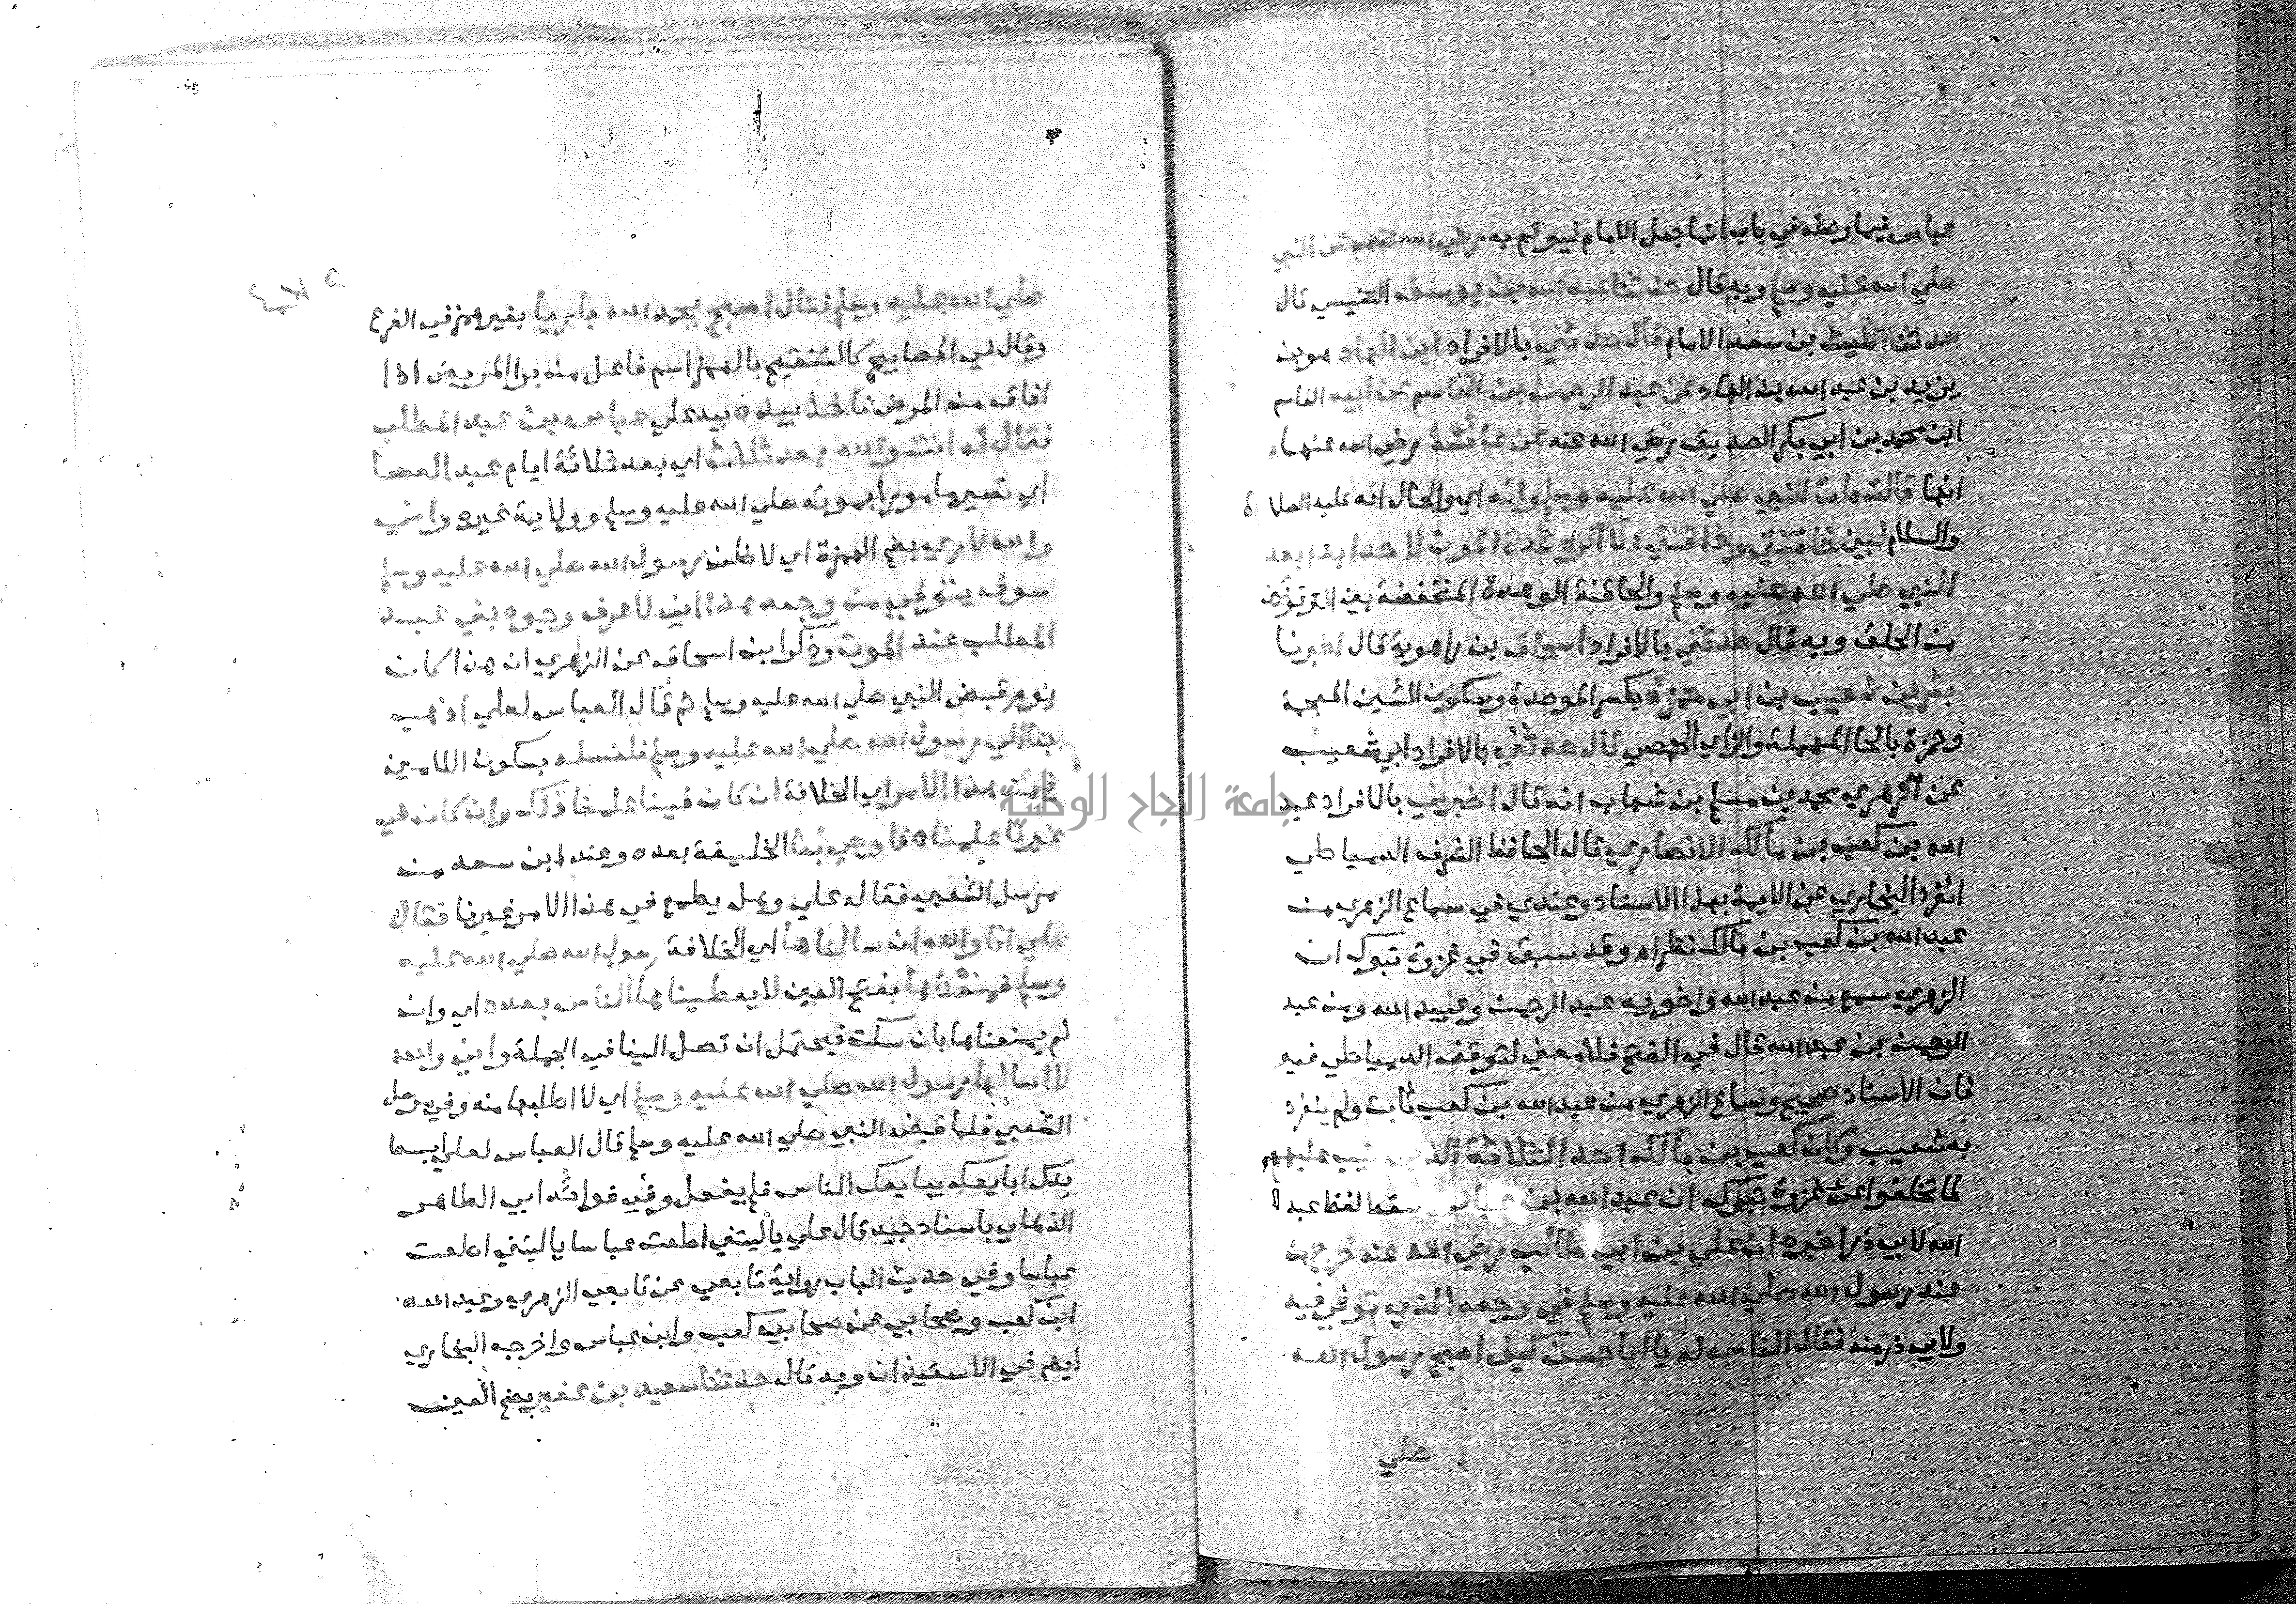 عباس فيما وصله في باب انما جعل الامام ليوتم به رضي الله عنهم عن النبي
صلي الله عليه وسلم وبه قال حدثنا عبد الله بن يوسف التنيسي قال
حدثنا الليث بن سعد الامام قال حدثني بالافراد ابن الهاد هو بن
يزيد بن عبد الله بن الهاد عن عبد الرحمن بن القاسم عن ابيه القاسم
ابن محمد بن ابي بكر الصديق رضي الله عنه عن عائشة رضي الله عنها
انها قالت مات النبي صلي الله عليه وسلم وانه اي والحال انه عليه الصلاة
والسلام لبين حاقنتي وذاقنتي فلا اكره شدة الموت لاحد ابدا بعد
النبي صلي الله عليه وسلم والحاقنة الوهدة المنخفضة بين الترقوتين
من الحلق وبه قال حدثني بالافراد اسحاق بن راهوية قال اخبرنا
بشر بن شعيب بن ابي حمزة بكسر الموحدة وسكون الشين المعجمة
وحمزة بالحا المهملة والزاي الحمصي قال حدثني بالافراد ابي شعيب
عن الزهري محمد بن مسلم بن شهاب انه قال اخبرني بالافراد عبد
الله بن كعب بن مالك الانصاري قال الحافظ الشرف الدمياطي
انفرد البخاري عن الايمة بهذا الاسناد وعندي في سماع الزهري من
عبد الله بن كعب بن مالك نظر اه وقد سبق في غزوة تبوك ان
الزهري سمع من عبد الله واخويه عبد الرحمن وعبيد الله ومن عبد
الرحمن بن عبد الله قال في الفتح فلا معني لتوقف الدمياطي فيه
فان الاسناد صحيح وسماع الزهري من عبد الله بن كعب ثابت ولم ينفرد
به شعيب وكان كعب بن مالك احد الثلاثة الذين تيب عليهم
لما تخلفوا عن غزوة تبوك ان عبد الله بن عباس سقط لفظ عبد
الله لابي ذر اخبره ان علي بن ابي طالب رضي الله عنه خرج من
عند رسول الله صلي الله عليه وسلم في وجعه الذي توفي فيه
ولابي ذر منه فقال الناس له يا ابا حسن كيف اصبح رسول الله
صلي
صلي الله عليه وسلم فقال اصبح بحمد الله باريا بغير همز في الفرع
وقال في المصابيح كالتنقيح بالهمز اسم فاعل من برا المريض اذا
افاق من المرض فاخذ بيده بيد علي عباس بن عبد المطلب
فقال له انت والله بعد ثلاث اي بعد ثلاثة ايام عبد العصا
اي تصير مامورا بموته صلي الله عليه وسلم وولاية غيره واني
والله لاري بضم الهمزة اي لاظن رسول الله صلي الله عليه وسلم
سوف يتوفي من وجعه هذا اني لاعرف وجوه بني عبد
المطلب عند الموت وذكر ابن اسحاق عن الزهري ان هذا كان
يوم قبض النبي صلي الله عليه وسلم ثم قال العباس لعلي اذهب
بنا الي رسول الله صلي الله عليه وسلم فلنسله بسكون اللامين
فيمن هذا الامر اي الخلافة ان كان فينا علمنا ذلك وان كان في
غيرنا علمناه فاوصي بنا الخليفة بعده وعند ابن سعد من
مرسل الشعبي فقال علي وهل يطمع في هذا الامر غيرنا فقال
علي انا والله ان سالناها اي الخلافة رسول الله صلي الله عليه
وسلم فمنعناها بفتح العين لا يعطيناها الناس بعده اي وان
لم يمنعناها بان سكت فيحتمل ان تصل الينا في الجملة واني والله
لا اسالها رسول الله صلي الله عليه وسلم اي لا اطلبها منه وفي مرسل
الشعبي فلما قبض النبي صلي الله عليه وسلم قال العباس لعلي ابسط
يدك ابايعك يبايعك الناس فلم يفعل وفي فوائد ابي الطاهر
الذهلي باسناد جيد قال علي يا ليتني اطعت عباسا يا ليتني اطعت
عباسا وفي حديث الباب رواية تابعي عن تابعي الزهري وعبد الله
ابن كعب وصحابي عن صحابي كعب وابن عباس واخرجه البخاري
ايضم في الاستيذان وبه قال حدثنا سعيد بن عفير بضم العين
جامعة النجاح الوطنية